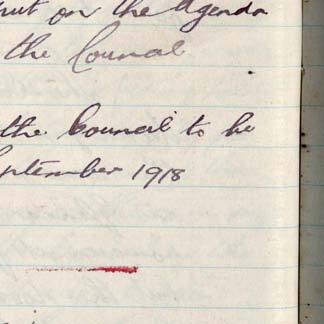 put on the Agenda
the Council
the Council to be
September 1918